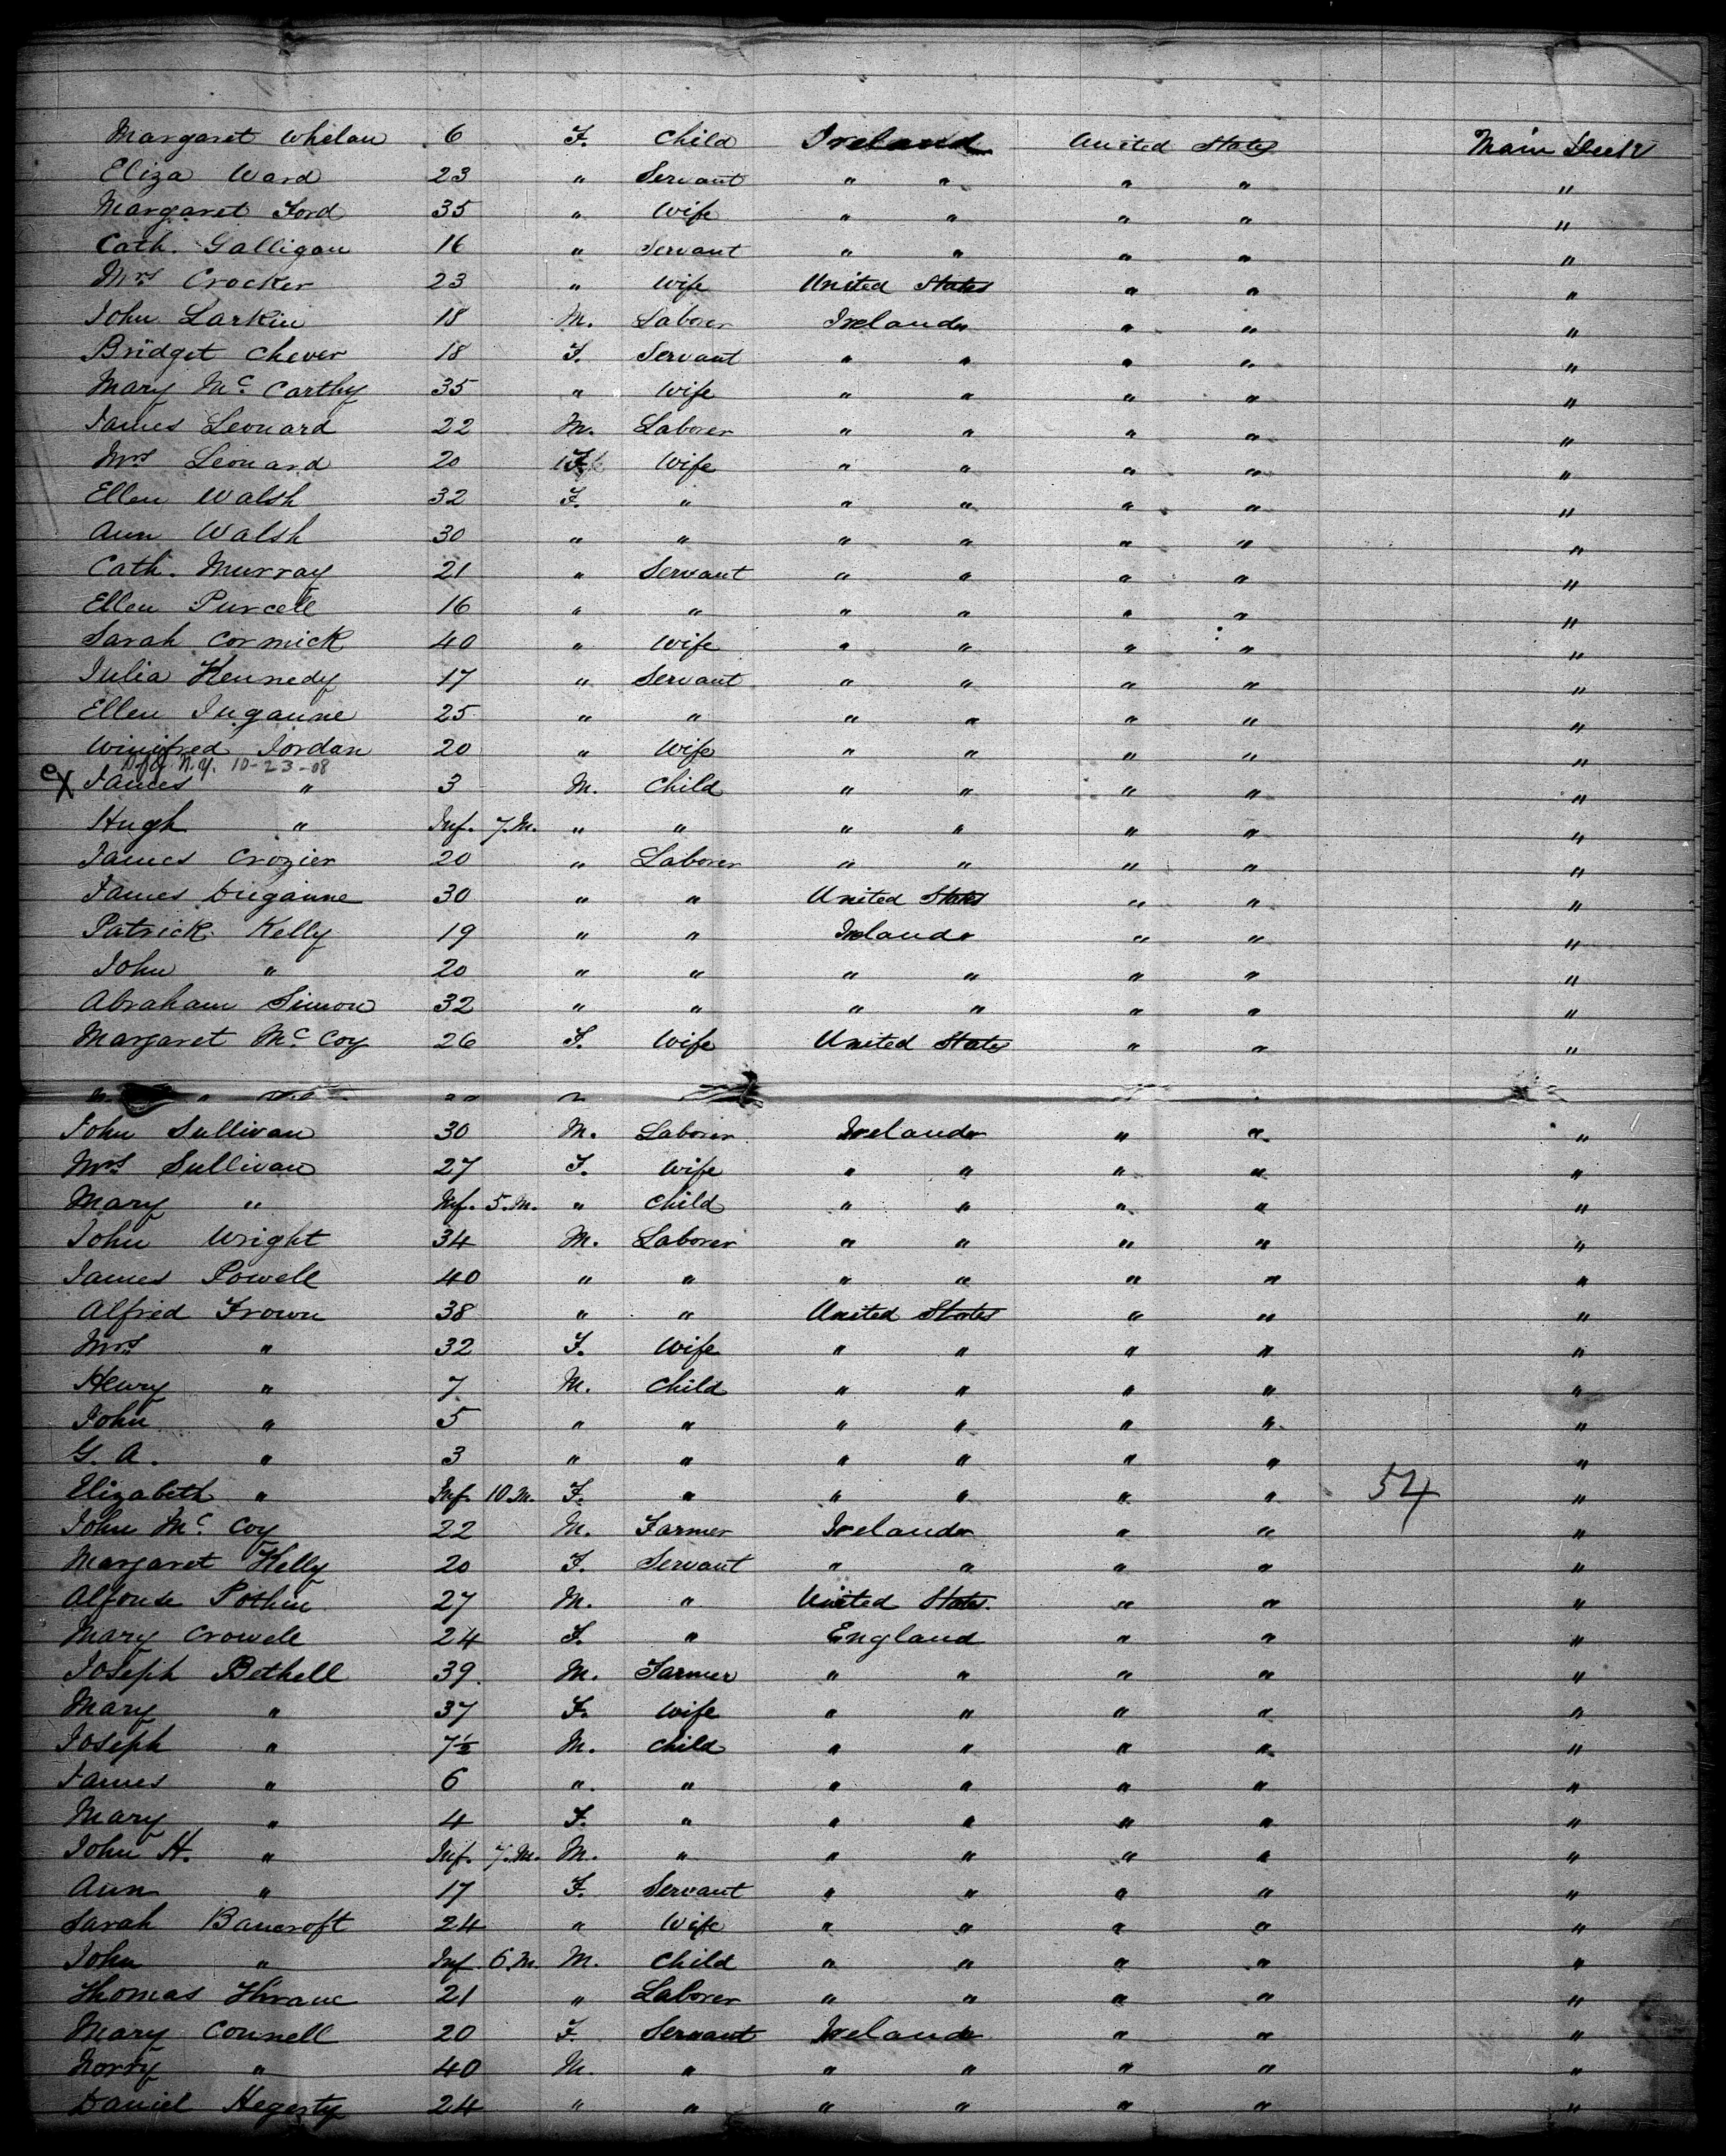 Margaret Whelan 6 F. Child Ireland United States Main Deck
Eliza Ward 23 " Servant " " " " "
Margaret Ford 35 " Wife " " " " "
Cath. Galligan 16 " Servant " " " " "
Mrs Crocker 23 " Wife United States " " "
John Larkin 18 M. Laborer Ireland " " "
Bridget Chever 18 F. Servant " " " " "
Mary Mc Carthy 35 " Wife " " " " "
James Leonard 22 M. Laborer " " " " "
Mrs Leonard 20 F Wife " " " " "
Ellen Walsh 32 F. " " " " " "
Ann Walsh 30 " " " " " " "
Cath. Murray 21 " Servant " " " " "
Ellen Purcell 16 " " " " " " "
Sarah Cormick 40 " Wife " " " " "
Julia Kennedy 17 " Servant " " " " "
Ellen 25 " " " " " " "
Winifred Jordan 20 " Wife " " " " "
N.Y. 10-23-08
James " 3 M. Child " " " " "
Hugh " Inf. 7. M. " " " " " " "
James Crozier 20 " Laborer " " " " "
James Duganne 30 " " United States " " "
Patrick Kelly 19 " " Ireland " " "
John " 20 " " " " " " "
Abraham Simon 32 " " " " " " "
Margaret Mc Coy 26 F. Wife United States " " "
John Sullivan 30 M. Laborer Ireland " " "
Mrs Sullivan 27 F. Wife " " " " "
Mary " Inf. 5. M. " Child " " " " "
John Wright 34 M. Laborer " " " " "
James Powell 40 " " " " " " "
Alfred Frown 38 " " United States " " "
Mrs " 32 F. Wife " " " " "
Henry " 7 M. Child " " " " "
John " 5 " " " " " " "
G. A. " 3 " " " " " " "
Elizabeth " Inf. 10. M. F. " " " " " 54 "
John Mc Coy 22 M. Farmer Ireland " " "
Margaret Kelly 20 F. Servant " " " " "
Alfonse Pothin 27 M. " United States. " " "
Mary Crowell 24 F. " England " " "
Joseph Bethell 39 M. Farmer " " " " "
Mary " 37 F. Wife " " " " "
Joseph " 7½ M. Child " " " " "
James " 6 " " " " " " "
Mary " 4 F. " " " " " "
John H. " Inf. 7. M. M. " " " " " "
Ann " 17 F. Servant " " " " "
Sarah Bancroft 24 " Wife " " " " "
John " Inf. 6. M. M. Child " " " " "
Thomas 21 " Laborer " " " " "
Mary Connell 20 F. Servant Ireland " " "
Norry " 40 M. " " " " " "
Daniel Hegerty 24 " " " " " " "